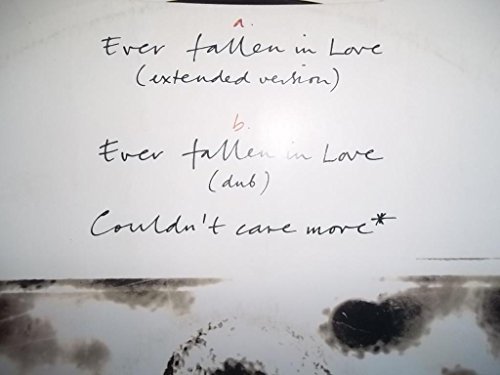 a.
Ever fallen in Love
(extended version)
b.
Ever fallen in Love
(dub)
Couldn't care more*